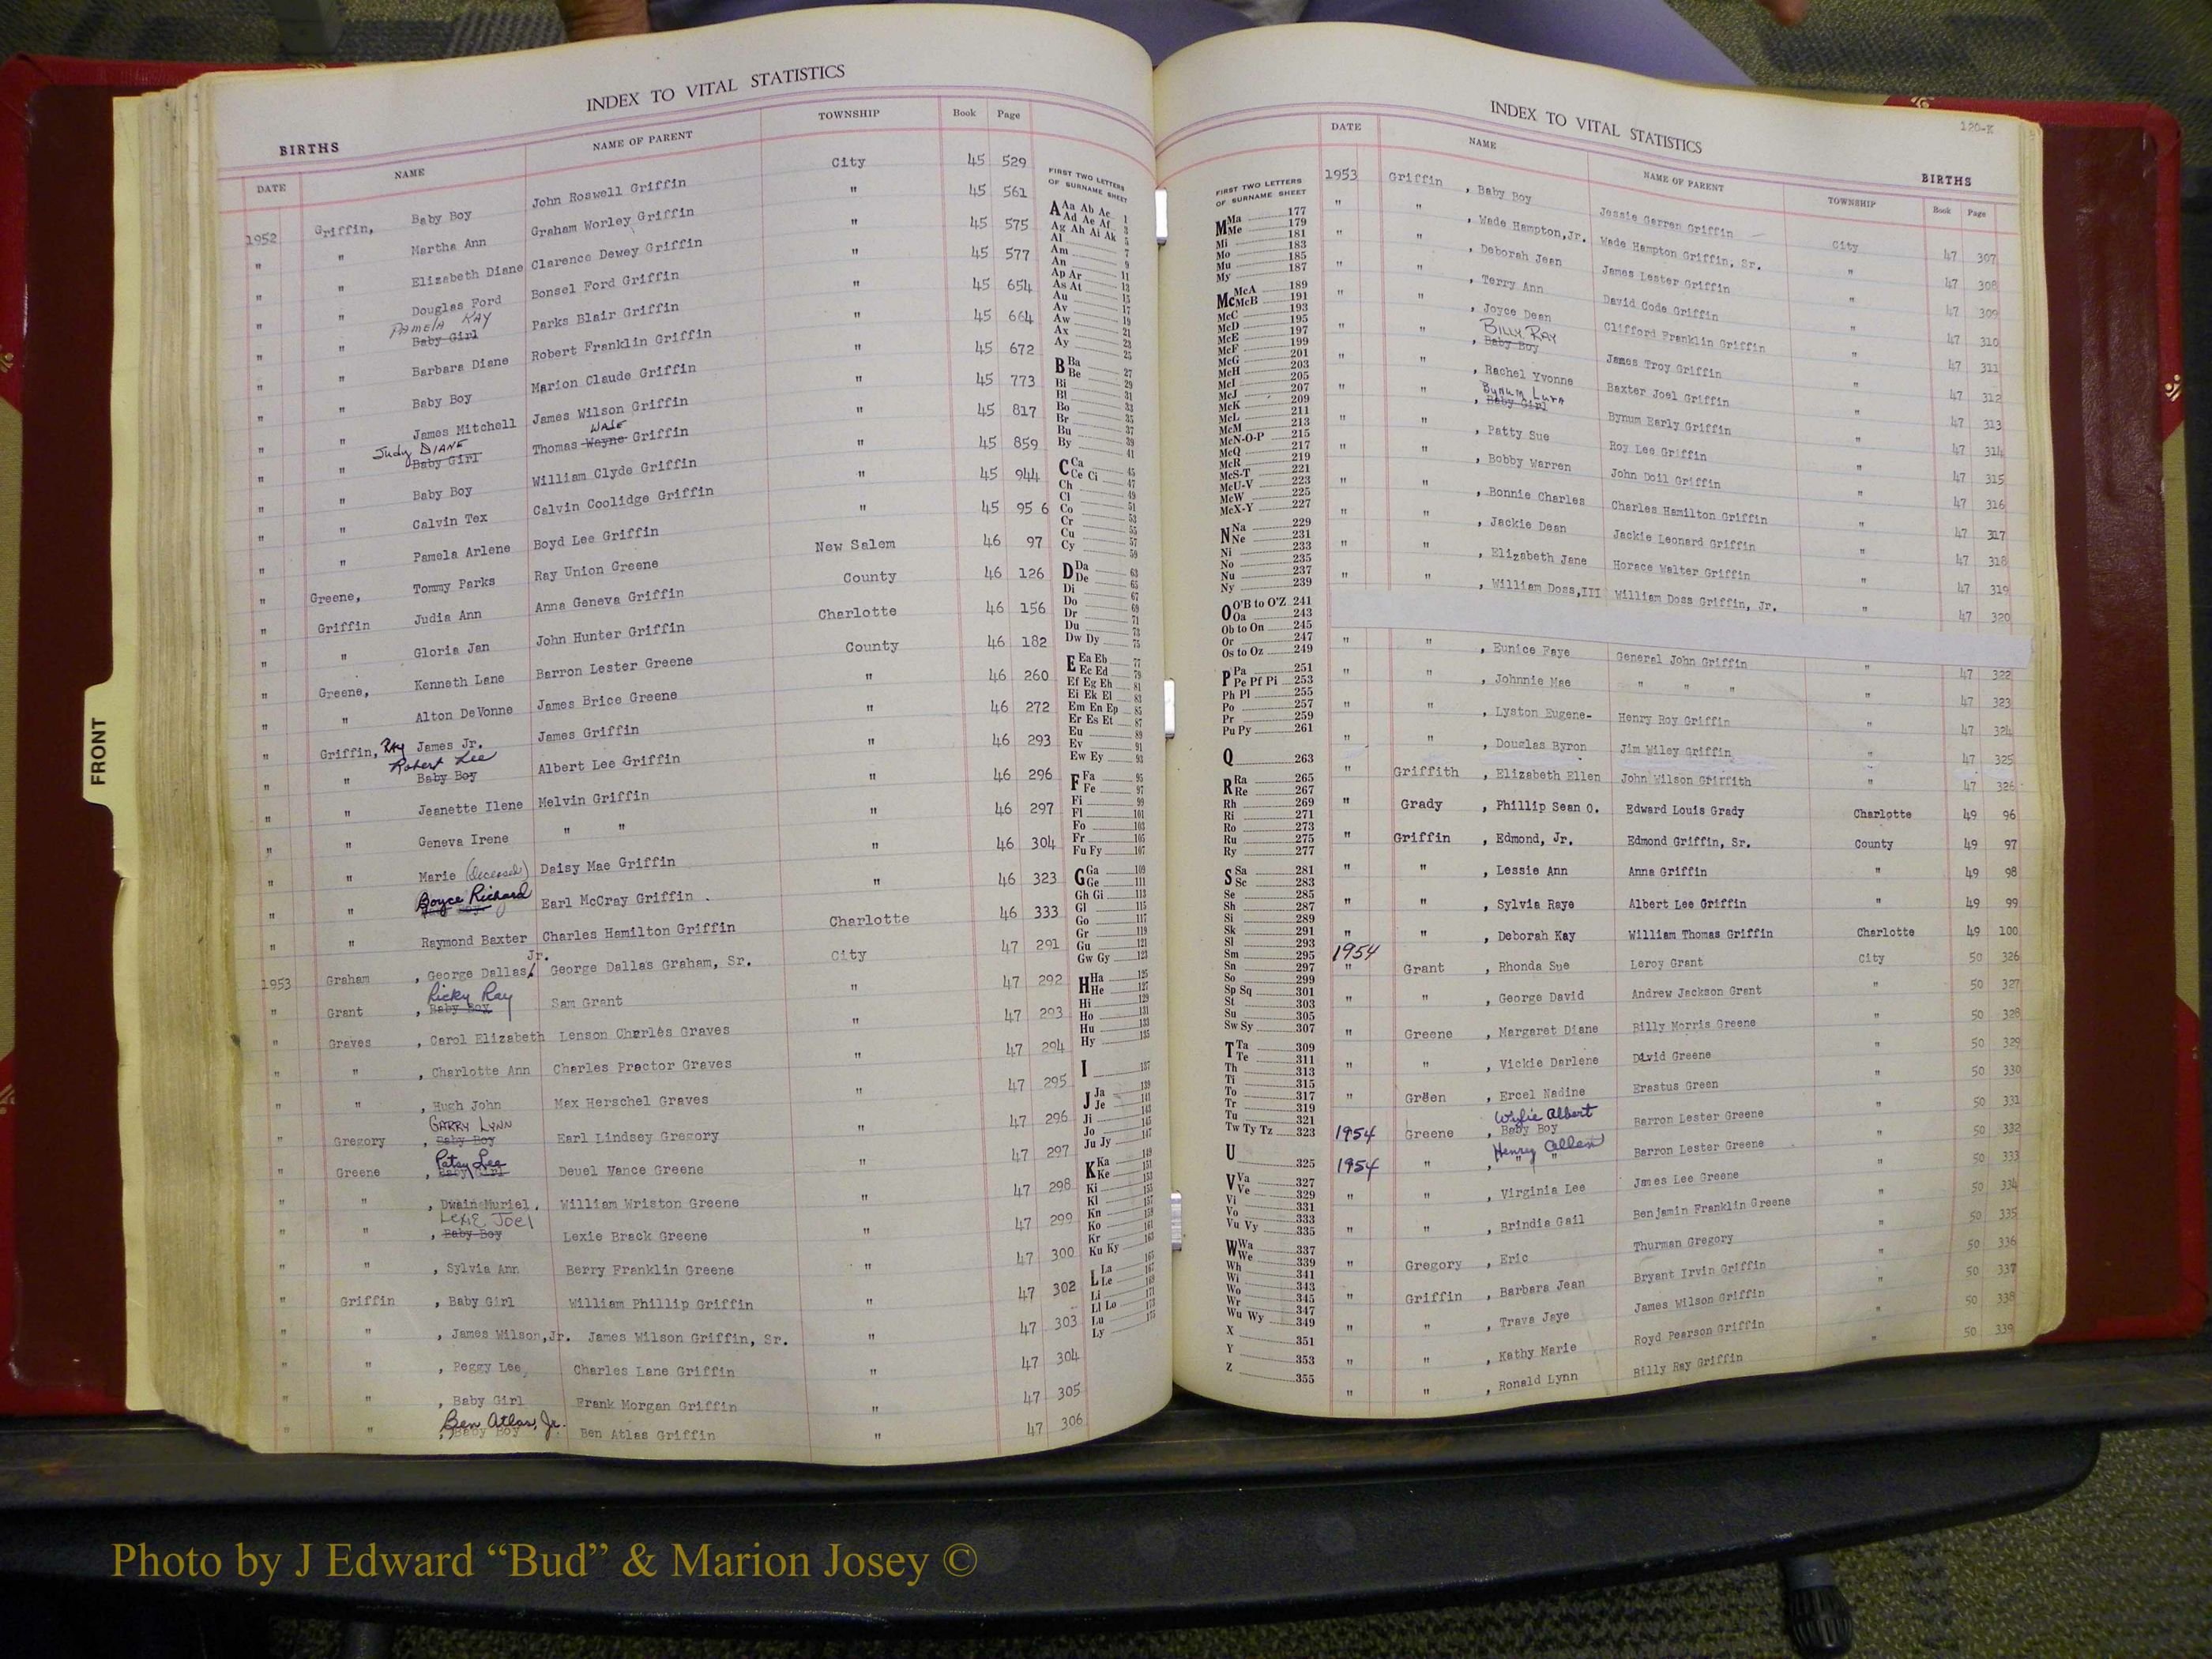 INDEX TO VITAL STATISTICS
BIRTHS
DATE NAME NAME OF PARENT TOWNSHIP Book Page
1952 Griffin, Baby Boy John Roswell Griffin City 45 529
" " Martha Ann Graham Worley Griffin " 45 561
" " Elizabeth Diane Clarence Dewey Griffin " 45 575
" " Douglas Ford Bonsel Ford Griffin " 45 577
PAMELA KAY
" " Baby Girl Parks Blair Griffin " 45 654
" " Barbara Diane Robert Franklin Griffin " 45 664
" " Baby Boy Marion Claude Griffin " 45 672
" " James Mitchell James Wilson Griffin " 45 773
Judy DIANE WADE
" " Baby Girl Thomas Wayne Griffin " 45 817
" " Baby Boy William Clyde Griffin " 45 859
" " Calvin Tex Calvin Coolidge Griffin " 45 944
" " Pamela Arlene Boyd Lee Griffin " 45 95 6
" Greene, Tommy Parks Ray Union Greene New Salem 46 97
" Griffin Judia Ann Anna Geneva Griffin County 46 126
" " Gloria Jan John Hunter Griffin Charlotte 46 156
" Greene, Kenneth Lane Barron Lester Greene County 46 182
" " Alton DeVonne James Brice Greene " 46 260
" Griffin, Ray James Jr. James Griffin " 46 272
Robert Lee
" " Baby Boy Albert Lee Griffin " 46 293
" " Jeanette Ilene Melvin Griffin " 46 296
" " Geneva Irene " " " 46 297
" " Marie (deceased) Daisy Mae Griffin " 46 304
" " Boyce Richard Earl McCray Griffin . " 46 323
" " Raymond Baxter Charles Hamilton Griffin Charlotte 46 333
1953 Graham , George Dallas, Jr. George Dallas Graham, Sr. City 47 291
Ricky Ray
" Grant , Baby Boy Sam Grant " 47 292
" Graves , Carol Elizabeth Lenson Charles Graves " 47 293
" " , Charlotte Ann Charles Proctor Graves " 47 294
" " , Hugh John Max Herschel Graves " 47 295
GARRY LYNN
" Gregory , Baby Boy Earl Lindsey Gregory " 47 296
Patsy Lee
" Greene , Baby Girl Deuel Vance Greene " 47 297
" " , Dwain Muriel. William Wriston Greene " 47 298
LEXIE JOEl
" " , Baby Boy Lexie Brack Greene " 47 299
" " , Sylvia Ann Berry Franklin Greene " 47 300
" Griffin , Baby Girl William Phillip Griffin " 47 302
" " , James Wilson,Jr. James Wilson Griffin, Sr. " 47 303
" " , Peggy Lee, Charles Lane Griffin " 47 304
" " , Baby Girl Frank Morgan Griffin " 47 305
Ben Atlas, Jr.
" " , Baby Boy Ben Atlas Griffin " 47 306
FRONT
FIRST TWO LETTERS
OF SURNAME SHEET
A Aa Ab Ac 1
Ad Ae Af 3
Ag Ah Ai Ak 5
Al 7
Am 9
An 11
Ap Ar 13
As At 15
Au 17
Av 19
Aw 21
Ax 23
Ay 25
B Ba 27
Be 29
Bi 31
Bl 33
Bo 35
Br 37
Bu 39
By 41
C Ca 45
Ce Ci 47
Ch 49
Cl 51
Co 53
Cr 55
Cu 57
Cy 59
D Da 63
De 65
Di 67
Do 69
Dr 71
Du 73
Dw Dy 75
E Ea Eb 77
Ec Ed 79
Ef Eg Eh 81
Ei Ek El 83
Em En Ep 85
Er Es Et 87
Eu 89
Ev 91
Ew Ey 93
F Fa 95
Fe 97
Fi 99
Fl 101
Fo 103
Fr 105
Fu Fy 107
G Ga 109
Ge 111
Gh Gi 113
Gl 115
Go 117
Gr 119
Gu 121
Gw Gy 123
H Ha 125
He 127
Hi 129
Ho 131
Hu 133
Hy 135
I 137
J Ja 139
Je 141
Ji 143
Jo 145
Ju Jy 147
K Ka 149
Ke 151
Ki 153
Kl 155
Kn 157
Ko 159
Kr 161
Ku Ky 163
L La 165
Le 167
Li 169
Ll Lo 171
Lu 173
Ly 175
INDEX TO VITAL STATISTICS
120-K
BIRTHS
FIRST TWO LETTERS
OF SURNAME SHEET
M Ma 177
Me 179
Mi 181
Mo 183
Mu 185
My 187
Mc McA 189
McB 191
McC 193
McD 195
McE 197
McF 199
McG 201
McH 203
McI 205
McJ 207
McK 209
McL 211
McM 213
McN-O-P 215
McQ 217
McR 219
McS-T 221
McU-V 223
McW 225
McX-Y 227
N Na 229
Ne 231
Ni 233
No 235
Nu 237
Ny 239
O O'B to O'Z 241
Oa 243
Ob to On 245
Or 247
Os to Oz 249
P Pa 251
Pe Pf Pi 253
Ph Pl 255
Po 257
Pr 259
Pu Py 261
Q 263
R Ra 265
Re 267
Rh 269
Ri 271
Ro 273
Ru 275
Ry 277
S Sa 281
Sc 283
Se 285
Sh 287
Si 289
Sk 291
Sl 293
Sm 295
Sn 297
So 299
Sp Sq 301
St 303
Su 305
Sw Sy 307
T Ta 309
Te 311
Th 313
Ti 315
To 317
Tr 319
Tu 321
Tw Ty Tz 323
U 325
V Va 327
Ve 329
Vi 331
Vo 333
Vu Vy 335
W Wa 337
We 339
Wh 341
Wi 343
Wo 345
Wr 347
Wu Wy 349
X 351
Y 353
Z 355
DATE NAME NAME OF PARENT TOWNSHIP Book Page
1953 Griffin , Baby Boy Jessie Garren Griffin City 47 307
" " , Wade Hampton,Jr. Wade Hampton Griffin, Sr. " 47 308
" " , Deborah Jean James Lester Griffin " 47 309
" " , Terry Ann David Code Griffin " 47 310
" " , Joyce Dean Clifford Franklin Griffin " 47 311
BILLY RAY
" " , Baby Boy James Troy Griffin " 47 312
" " , Rachel Yvonne Baxter Joel Griffin " 47 313
Bynum Lura
" " , Baby Girl Bynum Early Griffin " 47 314
" " , Patty Sue Roy Lee Griffin " 47 315
" " , Bobby Warren John Doil Griffin " 47 316
" " , Bonnie Charles Charles Hamilton Griffin " 47 317
" " , Jackie Dean Jackie Leonard Griffin " 47 318
" " , Elizabeth Jane Horace Walter Griffin " 47 319
" " , William Doss,III William Doss Griffin, Jr. " 47 320
" " , Eunice Faye General John Griffin " 47 322
" " , Johnnie Mae " " " " 47 323
" " , Lyston Eugene- Henry Roy Griffin " 47 324
" " , Douglas Byron Jim Wiley Griffin " 47 325
" Griffith , Elizabeth Ellen John Wilson Griffith " 47 326
" Grady , Phillip Sean O. Edward Louis Grady Charlotte 49 96
" Griffin , Edmond, Jr. Edmond Griffin, Sr. County 49 97
" " , Lessie Ann Anna Griffin " 49 98
" " , Sylvia Raye Albert Lee Griffin " 49 99
" " , Deborah Kay William Thomas Griffin Charlotte 49 100
1954
" Grant , Rhonda Sue Leroy Grant City 50 326
" " , George David Andrew Jackson Grant " 50 327
" Greene , Margaret Diane Billy Morris Greene " 50 328
" " , Vickie Darlene David Greene " 50 329
" Green , Ercel Nadine Erastus Green " 50 330
Wylie Albert
1954 Greene , Baby Boy Barron Lester Greene " 50 331
Henry Allen
1954 " , " " Barron Lester Greene " 50 332
" " , Virginia Lee James Lee Greene " 50 333
" " , Brindia Gail Benjamin Franklin Greene " 50 334
" Gregory , Eric Thurman Gregory " 50 335
" Griffin , Barbara Jean Bryant Irvin Griffin " 50 336
" " , Trava Jaye James Wilson Griffin " 50 337
" " , Kathy Marie Royd Pearson Griffin " 50 338
" " , Ronald Lynn Billy Ray Griffin " 50 339
Photo by J Edward “Bud” & Marion Josey ©